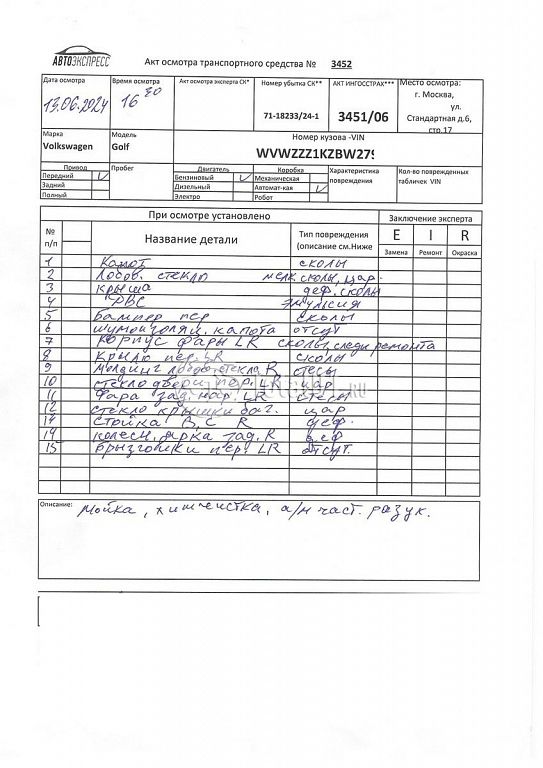 АВТОЭКСПРЕСС
Акт осмотра транспортного средства № 3452
Дата осмотра
13.06.2024
Время осмотра
16 30
Акт осмотра эксперта СК*
Номер убытка СК**
71-18233/24-1
АКТ ИНГОССТРАХ***
3451/06
Место осмотра:
г. Москва,
ул.
Стандартная д.6,
стр.17
Марка
Volkswagen
Модель
Golf
Номер кузова -VIN
WVWZZZ1KZBW279
Привод
Передний V
Задний
Полный
Пробег
Двигатель
Бензиновый V
Дизельный
Электро
Коробка
Механическая
Автомат-кая V
Робот
Характеристика
повреждения
Кол-во поврежденных
табличек VIN
При осмотре установлено
Заключение эксперта
№
п/п
Название детали
Тип повреждения
(описание см.Ниже
E I R
Замена Ремонт Окраска
1 Капот сколы
2 Лобов. стекло мелк. сколы, цар.
3 крыша деф. сколы
4 ДВС эмульсия
5 Бампер пер сколы
6 шумоизоляц. капота отсут
7 корпус фары LR сколы, следы ремонта
8 Крыло пер. LR сколы
9 Молдинг лобов стекла R
10 стекло двери пер. LR цар
11 Фара зад. нар. LR
12 стекло крышки баг. цар
14 Стойка В, С R деф.
14 колесн. арка зад. R деф
15 Брызговики пер. LR отсут.
Описание:
Мойка, химчистка, а/м част. разук.